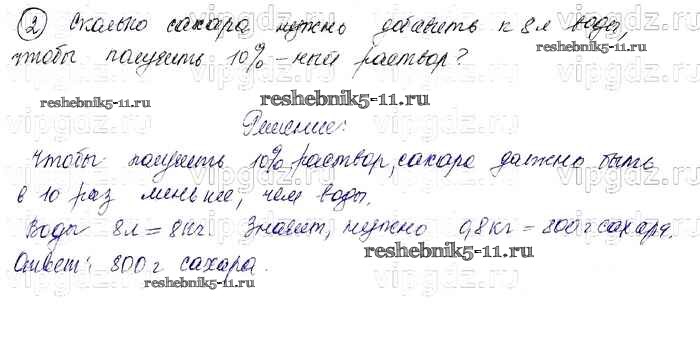 ② Сколько сахара нужно добавить к 8л воды,
чтобы получить 10%-ный раствор?
reshebnik5-11.ru
reshebnik5-11.ru
Решение:
Чтобы получить 10% раствор, сахара должно быть
в 10 раз меньше, чем воды.
Воды 8л = 8кг Значит, нужно 0,8кг = 800г сахара.
reshebnik5-11.ru
Ответ: 800г сахара.
reshebnik5-11.ru
vipgdz.ru